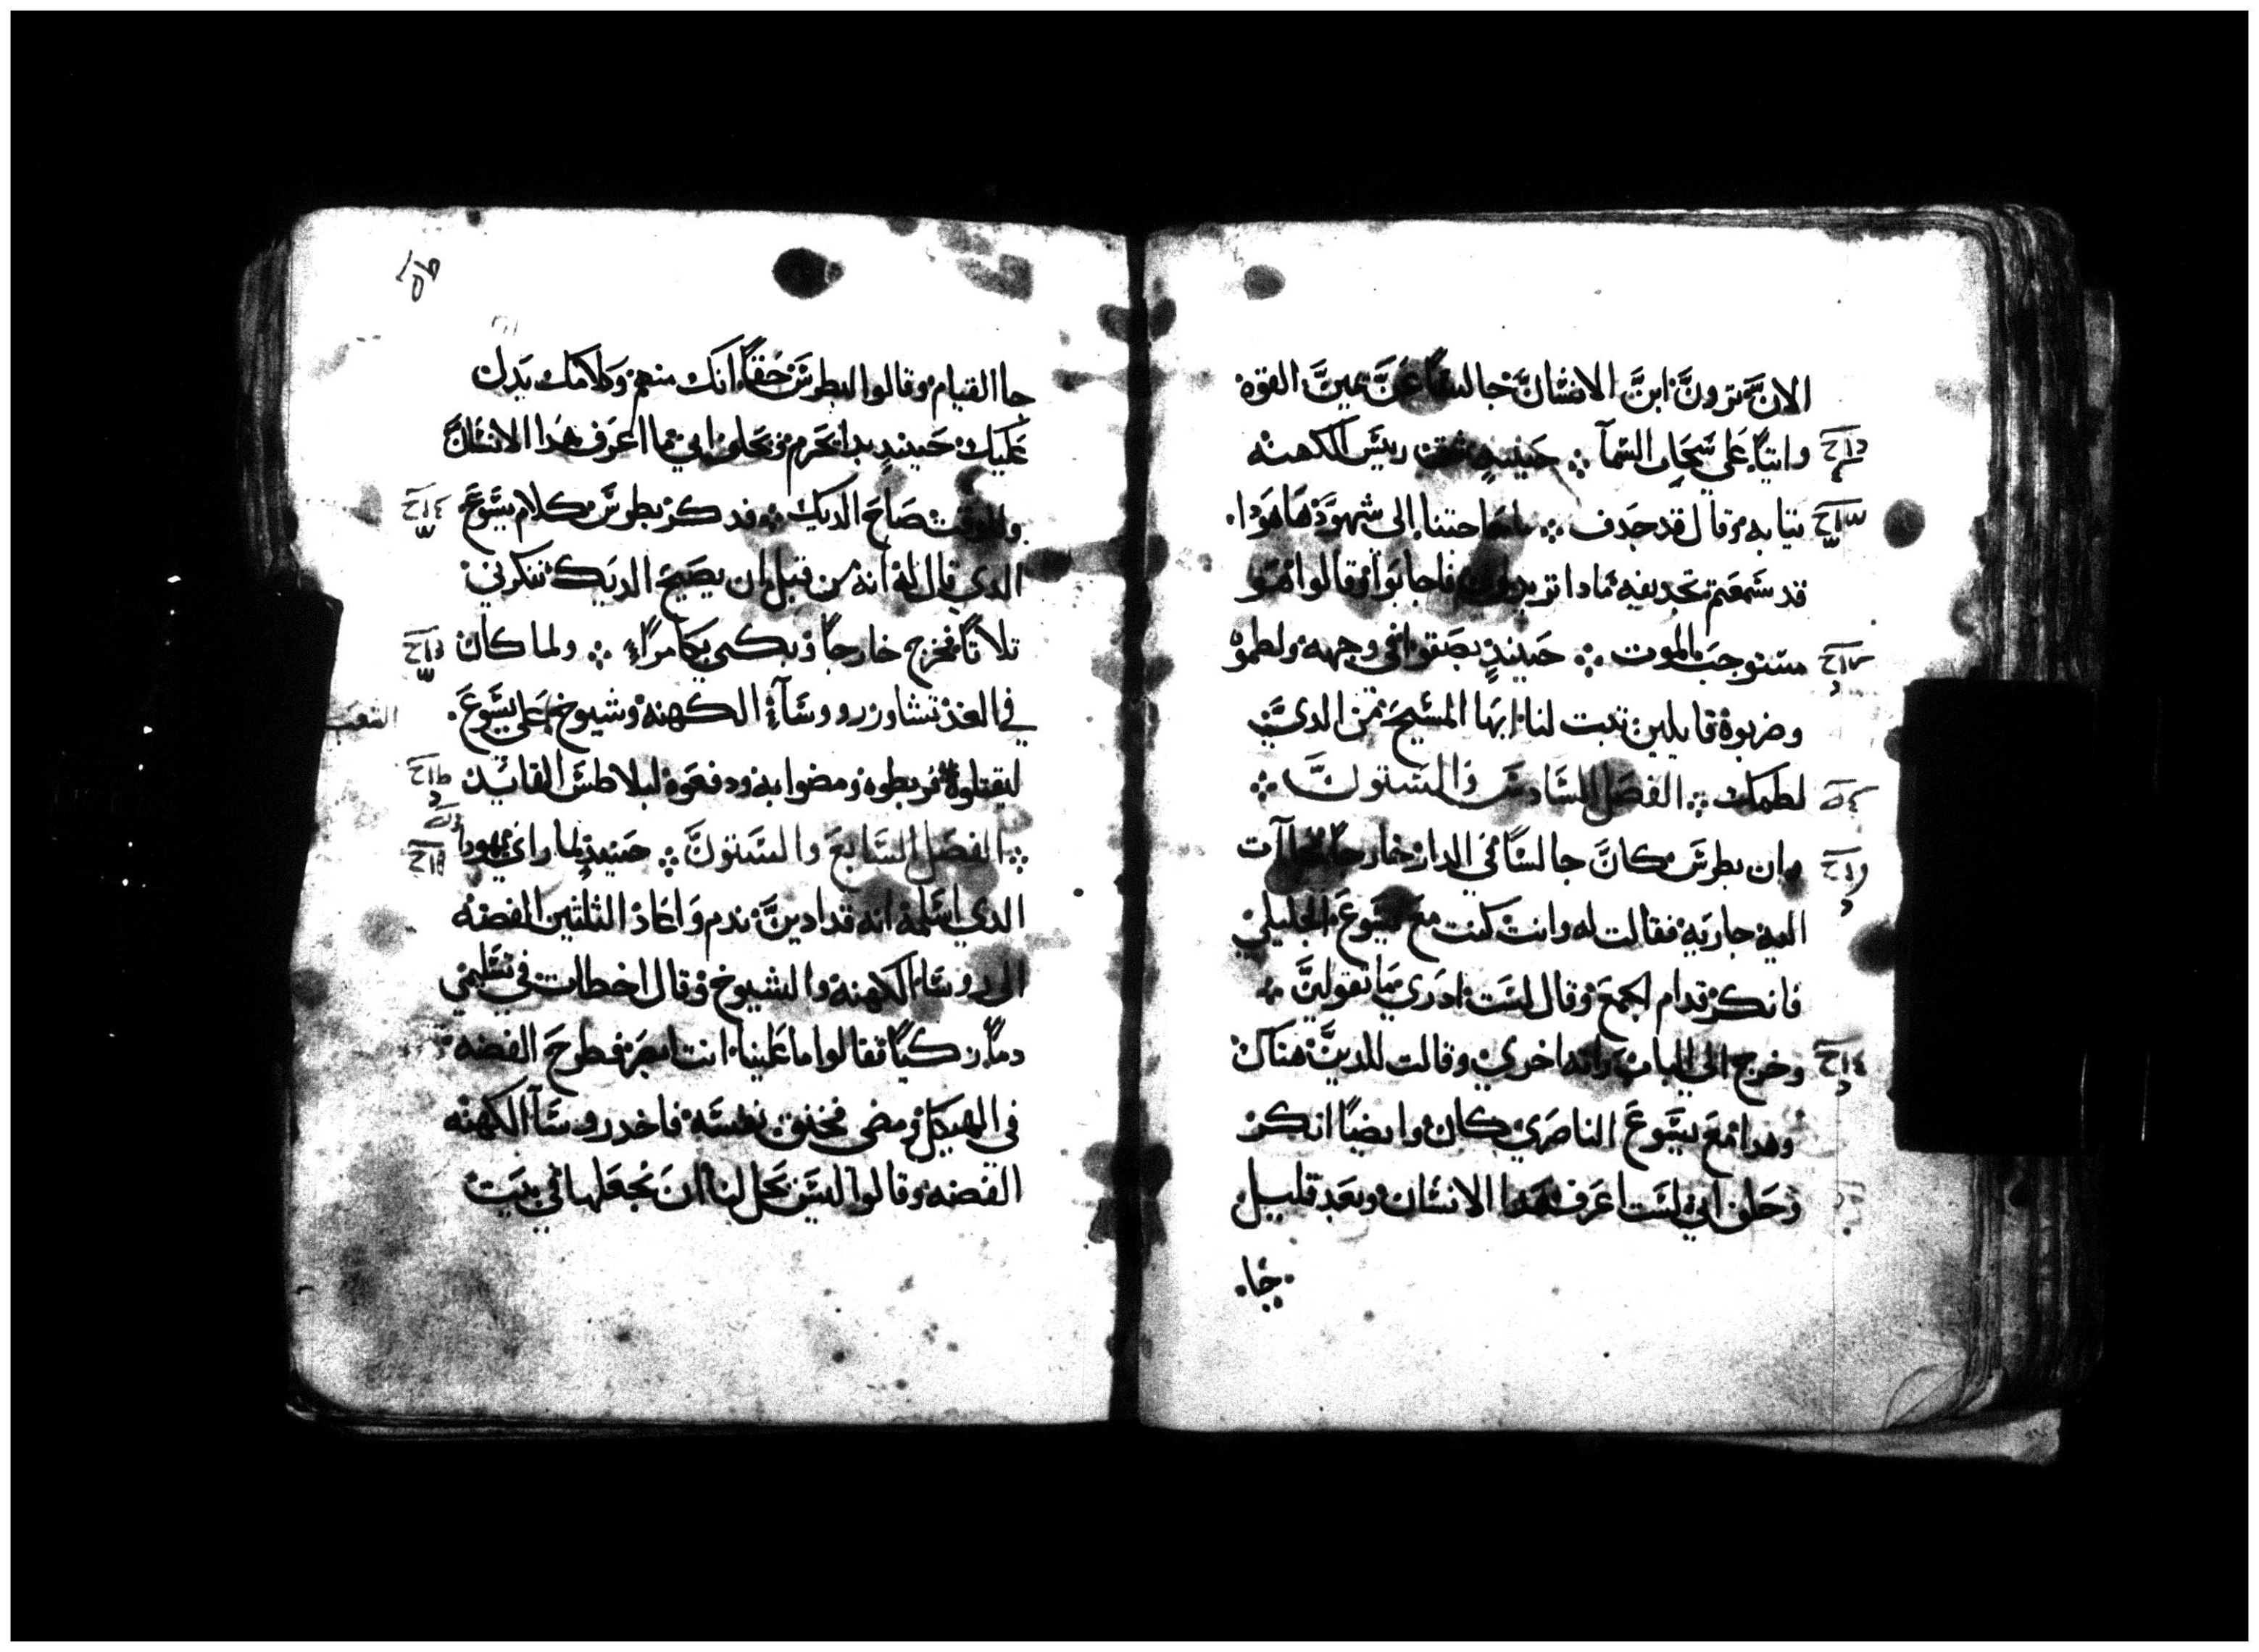 الان ترون ابن الانسان جالسًا عن يمين القوة
واتيًا على سحاب السمآ ⁘ حينيدٍ شق رييس الكهنه
تيابه وقال قد جدف ⁘ ما حاجتنا الى شهود هاهودا
قد سمعتم تجديفه مادا تريدون فاجابوا وقالوا هو
مستوجب الموت ⁘ حينيدٍ بصقوا في وجهه ولطموه
وضربوه قايلين تبت لنا ايها المسيح من الدي
لطمك ⁘ الفصل السادس والستون ⁘
وان بطرس كان جالسًا في الدار خارجًا آت
اليه جاريه فقالت له وانت كنت مع يسوع الجليلي
فانكر قدام الجمع وقال لست ادري ما تقولين
وخرج الى الباب راته اخري وقالت للدين هناك
وهدا مع يسوع الناصري كان وايضًا انكر
وحلف اني لست اعرف هدا الانسان وبعد قليل
جا
جا القيام وقالوا لبطرس حقًا انك منهم وكلامك يدل
عليك حينيدٍ بدا يحرم ويحلف اني ما اعرف هدا الانسان
وللوقت صاح الديك ⁘ فدكر بطرس كلام يسوع
الدي قال له انه من قبل ان يصيح الديك تنكرني
تلاتًا فخرج خارجًا وبكى بكا مرًا ⁘ ولما كان
في الغد تشاور روسآ الكهنه وشيوخ على يسوع
الشعب
ليقتلوه فربطوه ومضوا به ودفعوه لبيلاطس القايد
⁘ الفصل السابع والستون ⁘ حينيدٍ لما راي يهودا
الدي اسلمه انه قد ادين ندم واعاد الثلتين الفضه
الى روسا الكهنه والشيوخ وقال اخطات في تسليمي
دمًا زكيًا فقالوا ما علينا انت ابصر فطرح الفضه
في الهيكل ومضى فخنق نفسه فاخد روسآ الكهنه
الفضه وقالوا ليس يحل لنا ان نجعلها في بيت